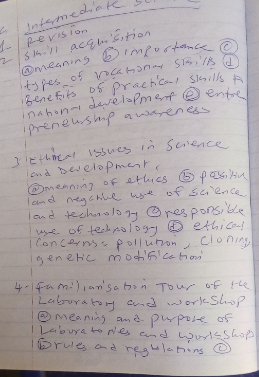 Intermediate
1- Revision
2 Skill acquisition
(a) meaning (b) importance (c)
types of vocational skills (d)
benefits of practical skills to
national development (e) entre
preneurship awareness
3 Ethical issues in Science
and Development,
(a) meaning of ethics (b) positive
and negative use of science
and technology (c) responsible
use of technology (d) ethical
concerns = pollution, cloning,
genetic modification
4- familiarisation Tour of the
Laboratory and workshop
(a) meaning and purpose of
Laboratories and workshops
(b) rules and regulations (c)